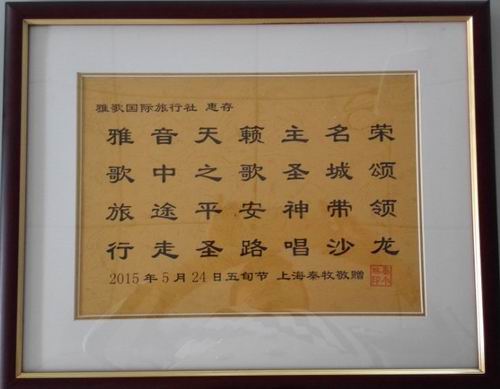 雅歌国际旅行社 惠存
雅音天籁主名荣
歌中之歌圣城颂
旅途平安神带领
行走圣路唱沙龙
2015年5月24日五旬节 上海秦牧敬赠